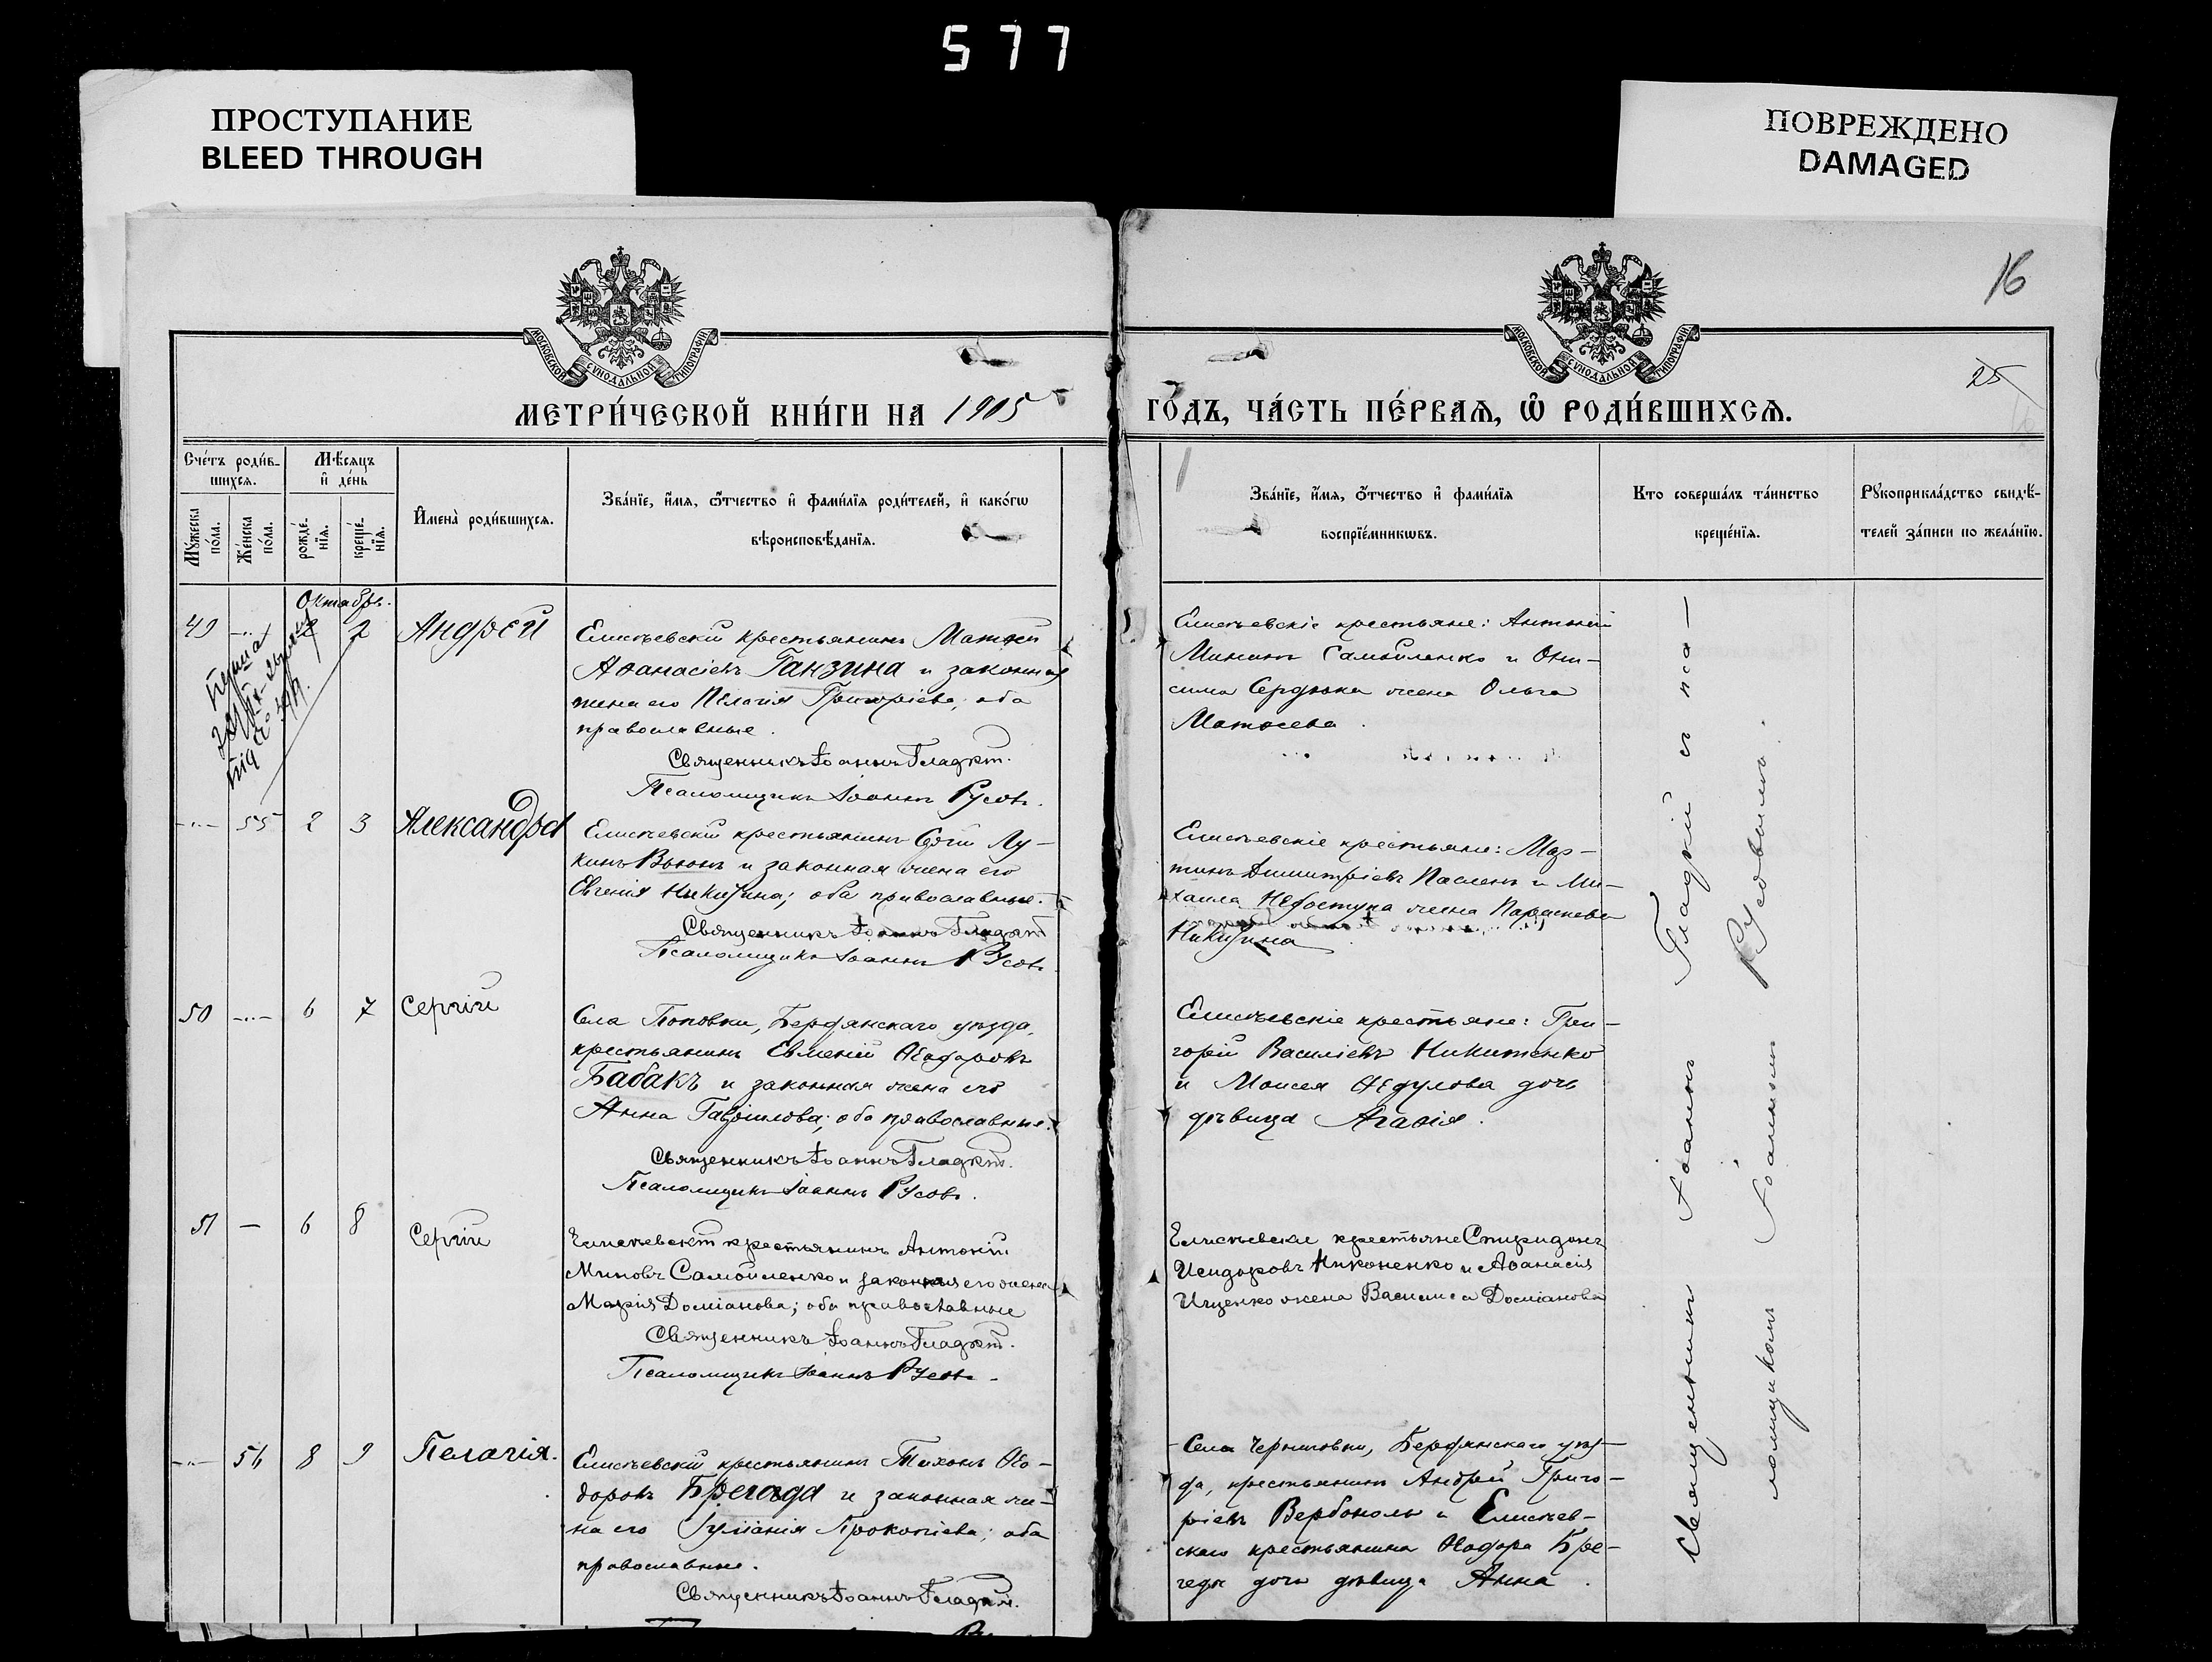 577
ПРОСТУПАНИЕ
BLEED THROUGH
ПОВРЕЖДЕНО
DAMAGED
16
25
МОСКОВСКОЙ СУНОДАЛЬНОЙ ТИПОГРАФІИ
МОСКОВСКОЙ СУНОДАЛЬНОЙ ТИПОГРАФІИ
МЕТРИ́ЧЕСКОЙ КНИ́ГИ НА 1905
ГО́ДЪ, ЧА́СТЬ ПЕ́РВАѦ, Ѡ҆ РОДИ́ВШИХСѦ.
Сче́тъ роди́в-
шихсѧ.
Мꙋ́жеска по́ла.
Же́нска по́ла.
Мѣ́сѧцъ
и҆ де́нь
рожде́-
нїѧ.
креще́-
нїѧ.
И҆мена̀ роди́вшихсѧ.
Зва́нїе, и҆́мѧ, ѻ҆́тчество и҆ фами́лїѧ роди́телей, и҆ како́гѡ
вѣроисповѣ́данїѧ.
Зва́нїе, и҆́мѧ, ѻ҆́тчество и҆ фами́лїѧ
воспрїе́мникѡвъ.
Кто соверша́лъ та́инство
креще́нїѧ.
Рꙋкоприкла́дство свидѣ́-
телей за́писи по жела́нїю.
Октябрь.
49 -"- 2 2 Андрей
Елисѣевскій крестьянинъ Матѳій
Аѳанасіевъ Ганзина и законная
жена его Пелагія Григоріева; оба
православные.
Священникъ Іоаннъ Гладкій.
Псаломщикъ Іоаннъ Русовъ.
Елисѣевскіе крестьяне: Антоній
Мининъ Самойленко и Они-
сима Сердюка жена Ольга
Матѳеева.
-"- 55 2 3 Александра
Елисѣевскій крестьянинъ Лу-
кинъ Вьюнъ и законная жена его
Евгенія Никитина; оба православные.
Священникъ Іоаннъ Гладкій
Псаломщикъ Іоаннъ Русовъ.
Елисѣевскіе крестьяне: Мар-
тинъ Димитріевъ Пасленъ и Ми-
хаила Недоступа жена Параскева
Никитина
50 -"- 6 7 Сергій
Села Поповки, Бердянскаго уѣзда,
крестьянинъ Евменій Ѳеодоровъ
Бабакъ и законная жена его
Анна Гавріилова; оба православные.
Священникъ Іоаннъ Гладкій.
Псаломщикъ Іоаннъ Русовъ.
Елисѣевскіе крестьяне: Гри-
горій Василіевъ Никитенко
и Моисея Ѳедулова дочь
дѣвица Агаѳія.
51 — 6 8 Сергій
Елисѣевскій крестьянинъ Антоній
Миновъ Самойленко и законная его жена
Марія Доміанова; оба православные
Священникъ Іоаннъ Гладкій.
Псаломщикъ Іоаннъ Русовъ.
Елисѣевскіе крестьяне Спиридонъ
Исидоровъ Никоненко и Аѳанасія
Ищенко жена Василиса Доміанова
-"- 56 8 9 Пелагія.
Елисѣевскій крестьянинъ Тихонъ Ѳео-
доровъ Брегеда и законная же-
на его Іуліанія Прокопіева; оба
православные.
Священникъ Іоаннъ Гладкій.
Села Черниговки, Бердянскаго уѣз-
да, крестьянинъ Андрей Григо-
ріевъ Вербоноль и Елисѣев-
скаго крестьянина Ѳеодора Бре-
геды дочь дѣвица Анна.
Священникъ Іоаннъ Гладкій и пса-
ломщикомъ Іоанномъ Русовымъ.